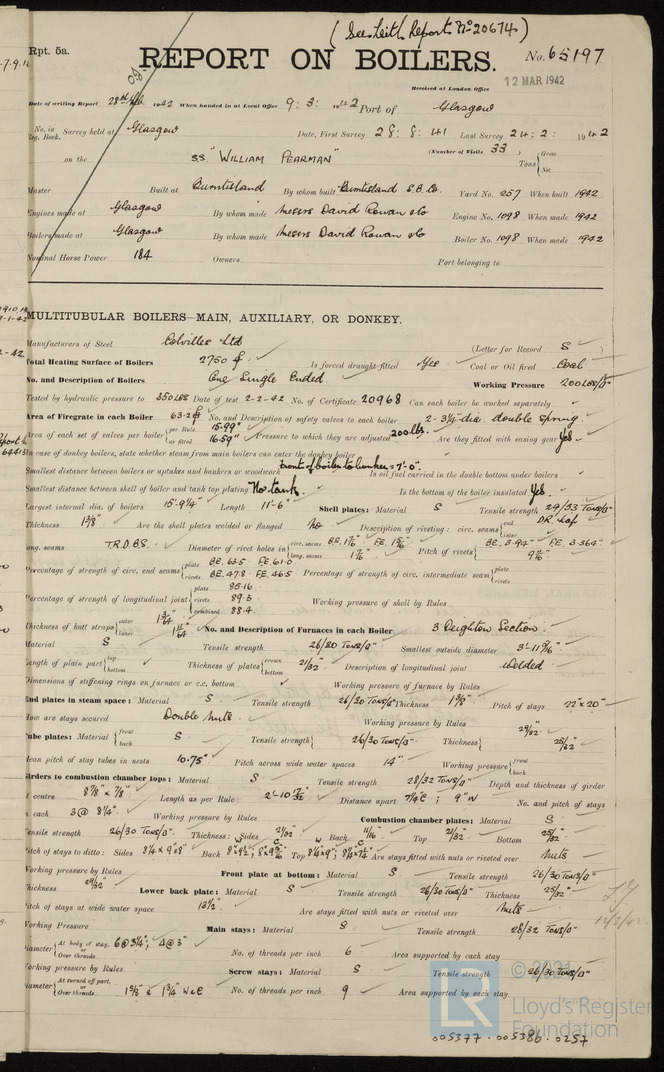 (See Leith Report No 20674)
Rpt. 5a.
REPORT ON BOILERS.
No. 65197
Received at London Office
12 MAR 1942
Date of writing Report 28th Feb 1942 When handed in at Local Office 9:3:1942 Port of Glasgow
No. in Reg. Book. Survey held at Glasgow Date, First Survey 28:8:41 Last Survey 24:2:1942
(Number of Visits 33)
on the SS "WILLIAM PEARMAN" Tons { Gross Net
Master Built at Burntisland By whom built Burntisland S.B. Co. Yard No. 257 When built 1942
Engines made at Glasgow By whom made Messrs David Rowan & Co Engine No. 1098 When made 1942
Boilers made at Glasgow By whom made Messrs David Rowan & Co Boiler No. 1098 When made 1942
Nominal Horse Power 184 Owners Port belonging to
MULTITUBULAR BOILERS—MAIN, AUXILIARY, OR DONKEY.
Manufacturers of Steel Colvilles Ltd (Letter for Record S)
Total Heating Surface of Boilers 2750 Is forced draught fitted Yes Coal or Oil fired Coal
No. and Description of Boilers One Single Ended Working Pressure 200 LBS/□"
Tested by hydraulic pressure to 350 LBS Date of test 2-2-42 No. of Certificate 20968 Can each boiler be worked separately
Area of Firegrate in each Boiler 63.2 No. and Description of safety valves to each boiler 2-3¼" dia. double spring
Area of each set of valves per boiler { per Rule 15.99" as fitted 16.59" Pressure to which they are adjusted 200 lbs. Are they fitted with easing gear Yes
In case of donkey boilers, state whether steam from main boilers can enter the donkey boiler
Smallest distance between boilers or uptakes and bunkers or woodwork Front of boiler to bunker = 7'-0". Is oil fuel carried in the double bottom under boilers
Smallest distance between shell of boiler and tank top plating No tank. Is the bottom of the boiler insulated Yes.
Largest internal dia. of boilers 15'-9¼" Length 11'-6" Shell plates: Material S Tensile strength 29/33 TONS/□"
Thickness 1⅜" Are the shell plates welded or flanged No Description of riveting: circ. seams { end DR. Lap inter.
long. seams T.R.D.B.S. Diameter of rivet holes in { circ. seams long. seams Pitch of rivets { BE. 3.94" FE. 3.364"
Percentage of strength of circ. end seams { plate BE. 63.5 FE. 61.0 rivets BE. 47.8 FE. 46.5 Percentage of strength of circ. intermediate seam { plate rivets
Percentage of strength of longitudinal joint { plate 85.16 rivets 89.3 combined 88.4 Working pressure of shell by Rules
Thickness of butt straps { outer inner No. and Description of Furnaces in each Boiler 3 Deighton Section.
Material S Tensile strength 26/30 TONS/□" Smallest outside diameter 3'-11 9/16"
Length of plain part { top bottom Thickness of plates { crown bottom 21/32" Description of longitudinal joint Welded
Dimensions of stiffening rings on furnace or c.c. bottom Working pressure of furnace by Rules
End plates in steam space: Material S Tensile strength 26/30 TONS/□" Thickness Pitch of stays 22" x 20"
How are stays secured Double Nuts Working pressure by Rules
Tube plates: Material { front back S Tensile strength { 26/30 TONS/□" Thickness { 29/32" 25/32"
Mean pitch of stay tubes in nests 10.75" Pitch across wide water spaces 14" Working pressure { front back
Girders to combustion chamber tops: Material S Tensile strength 28/32 TONS/□" Depth and thickness of girder
at centre 8⅞" x ⅞" Length as per Rule 2'-10 Distance apart ; 9" W No. and pitch of stays
in each 3 @ 8¼" Working pressure by Rules Combustion chamber plates: Material S
Tensile strength 26/30 TONS/□" Thickness: Sides 21/32" Back 11/16" Top 21/32" Bottom 25/32"
Pitch of stays to ditto: Sides Back Top Are stays fitted with nuts or riveted over Nuts
Working pressure by Rules Front plate at bottom: Material S Tensile strength 26/30 TONS/□"
Thickness 29/32" Lower back plate: Material S Tensile strength 26/30 TONS/□" Thickness 25/32"
Pitch of stays at wide water space 13½" Are stays fitted with nuts or riveted over Nuts
Working Pressure Main stays: Material S Tensile strength 28/32 TONS/□"
Diameter { At body of stay, or Over threads 6 @ 3¼"; 4 @ 3" No. of threads per inch 6 Area supported by each stay
Working pressure by Rules Screw stays: Material S Tensile strength 26/30 TONS/□"
Diameter { At turned off part, or Over threads 1⅝" & 1¾" W & C No. of threads per inch 9 Area supported by each stay
© 2021
LR Lloyd's Register
Foundation
005377-005386-0257